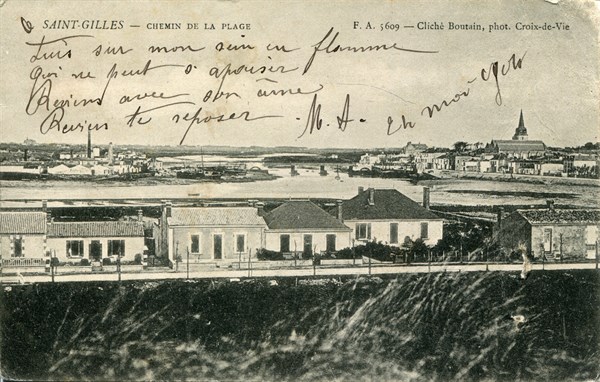 SAINT-GILLES — CHEMIN DE LA PLAGE
F. A. 5609 — Cliché Boutain, phot. Croix-de-Vie
Luis sur mon sein en flamme
Qui ne peut s'apaiser
Reviens avec son âme
Reviens te reposer
M. A.